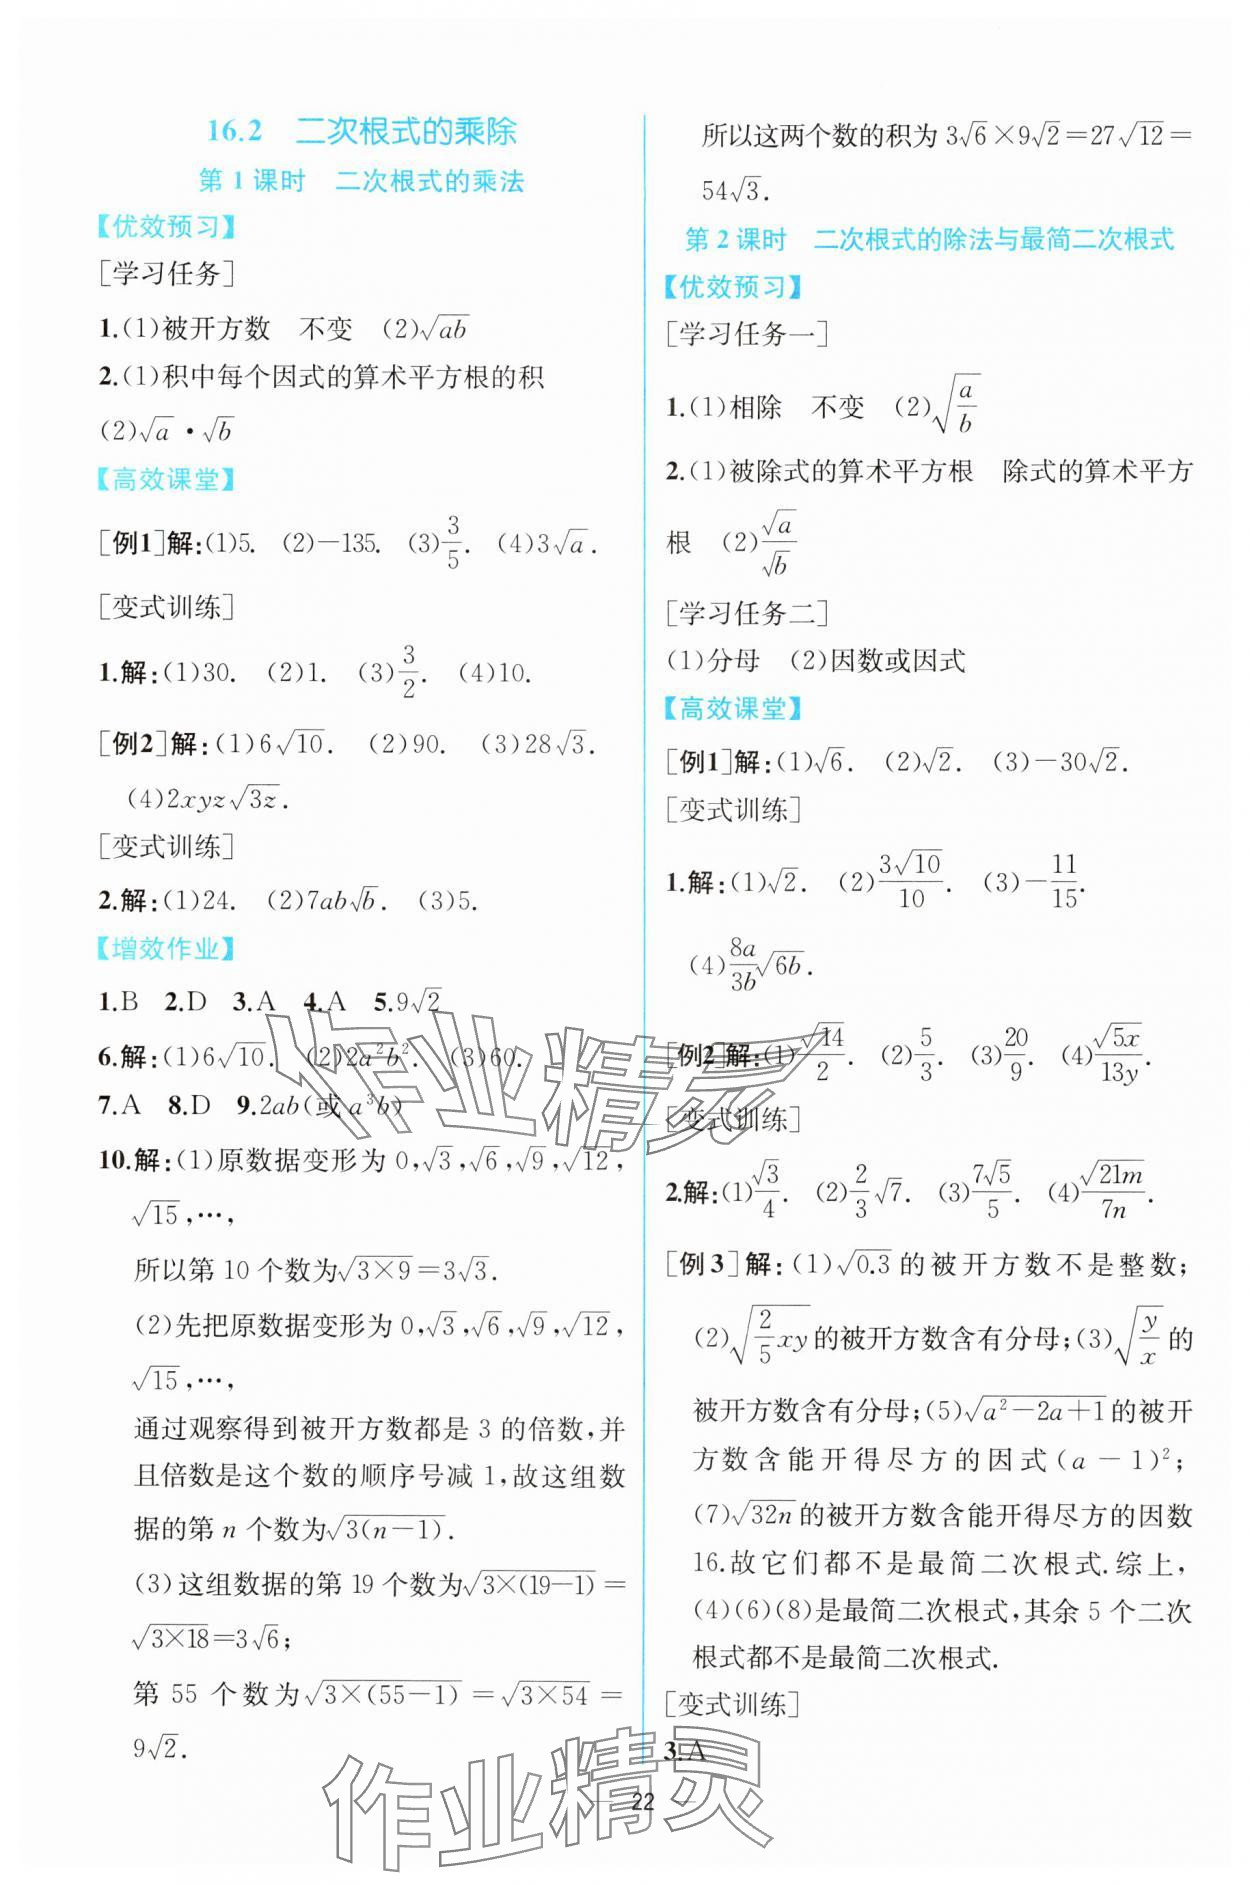 16.2 二次根式的乘除
第1课时 二次根式的乘法
【优效预习】
[学习任务]
1.(1)被开方数 不变 (2)√ab
2.(1)积中每个因式的算术平方根的积
(2)√a·√b
【高效课堂】
[例1]解:(1)5. (2)-135. (3)3/5. (4)3√a.
[变式训练]
1.解:(1)30. (2)1. (3)3/2. (4)10.
[例2]解:(1)6√10. (2)90. (3)28√3.
(4)2xyz√3z.
[变式训练]
2.解:(1)24. (2)7ab√b. (3)5.
【增效作业】
1.B 2.D 3.A 4.A 5.9√2
6.解:(1)6√10. (2)2a²b². (3)60.
7.A 8.D 9.2ab(或a³b)
10.解:(1)原数据变形为0,√3,√6,√9,√12,
√15,…,
所以第10个数为√3×9=3√3.
(2)先把原数据变形为0,√3,√6,√9,√12,
√15,…,
通过观察得到被开方数都是3的倍数,并
且倍数是这个数的顺序号减1,故这组数
据的第n个数为√3(n-1).
(3)这组数据的第19个数为√3×(19-1)=
√3×18=3√6;
第55个数为√3×(55-1)=√3×54=
9√2.
所以这两个数的积为3√6×9√2=27√12=
54√3.
第2课时 二次根式的除法与最简二次根式
【优效预习】
[学习任务一]
1.(1)相除 不变 (2)√(a/b)
2.(1)被除式的算术平方根 除式的算术平方
根 (2)√a/√b
[学习任务二]
(1)分母 (2)因数或因式
【高效课堂】
[例1]解:(1)√6. (2)√2. (3)-30√2.
[变式训练]
1.解:(1)√2. (2)3√10/10. (3)-11/15.
(4)8a/3b√6b.
[例2]解:(1)√14/2. (2)5/3. (3)20/9. (4)√5x/13y.
[变式训练]
2.解:(1)√3/4. (2)2/3√7. (3)7√5/5. (4)√21m/7n.
[例3]解:(1)√0.3的被开方数不是整数;
(2)√(2/5xy)的被开方数含有分母;(3)√(y/x)的
被开方数含有分母;(5)√a²-2a+1的被开
方数含能开得尽方的因式(a-1)²;
(7)√32n的被开方数含能开得尽方的因数
16.故它们都不是最简二次根式.综上,
(4)(6)(8)是最简二次根式,其余5个二次
根式都不是最简二次根式.
[变式训练]
3.A
作业精灵
作业精灵
— 22 —